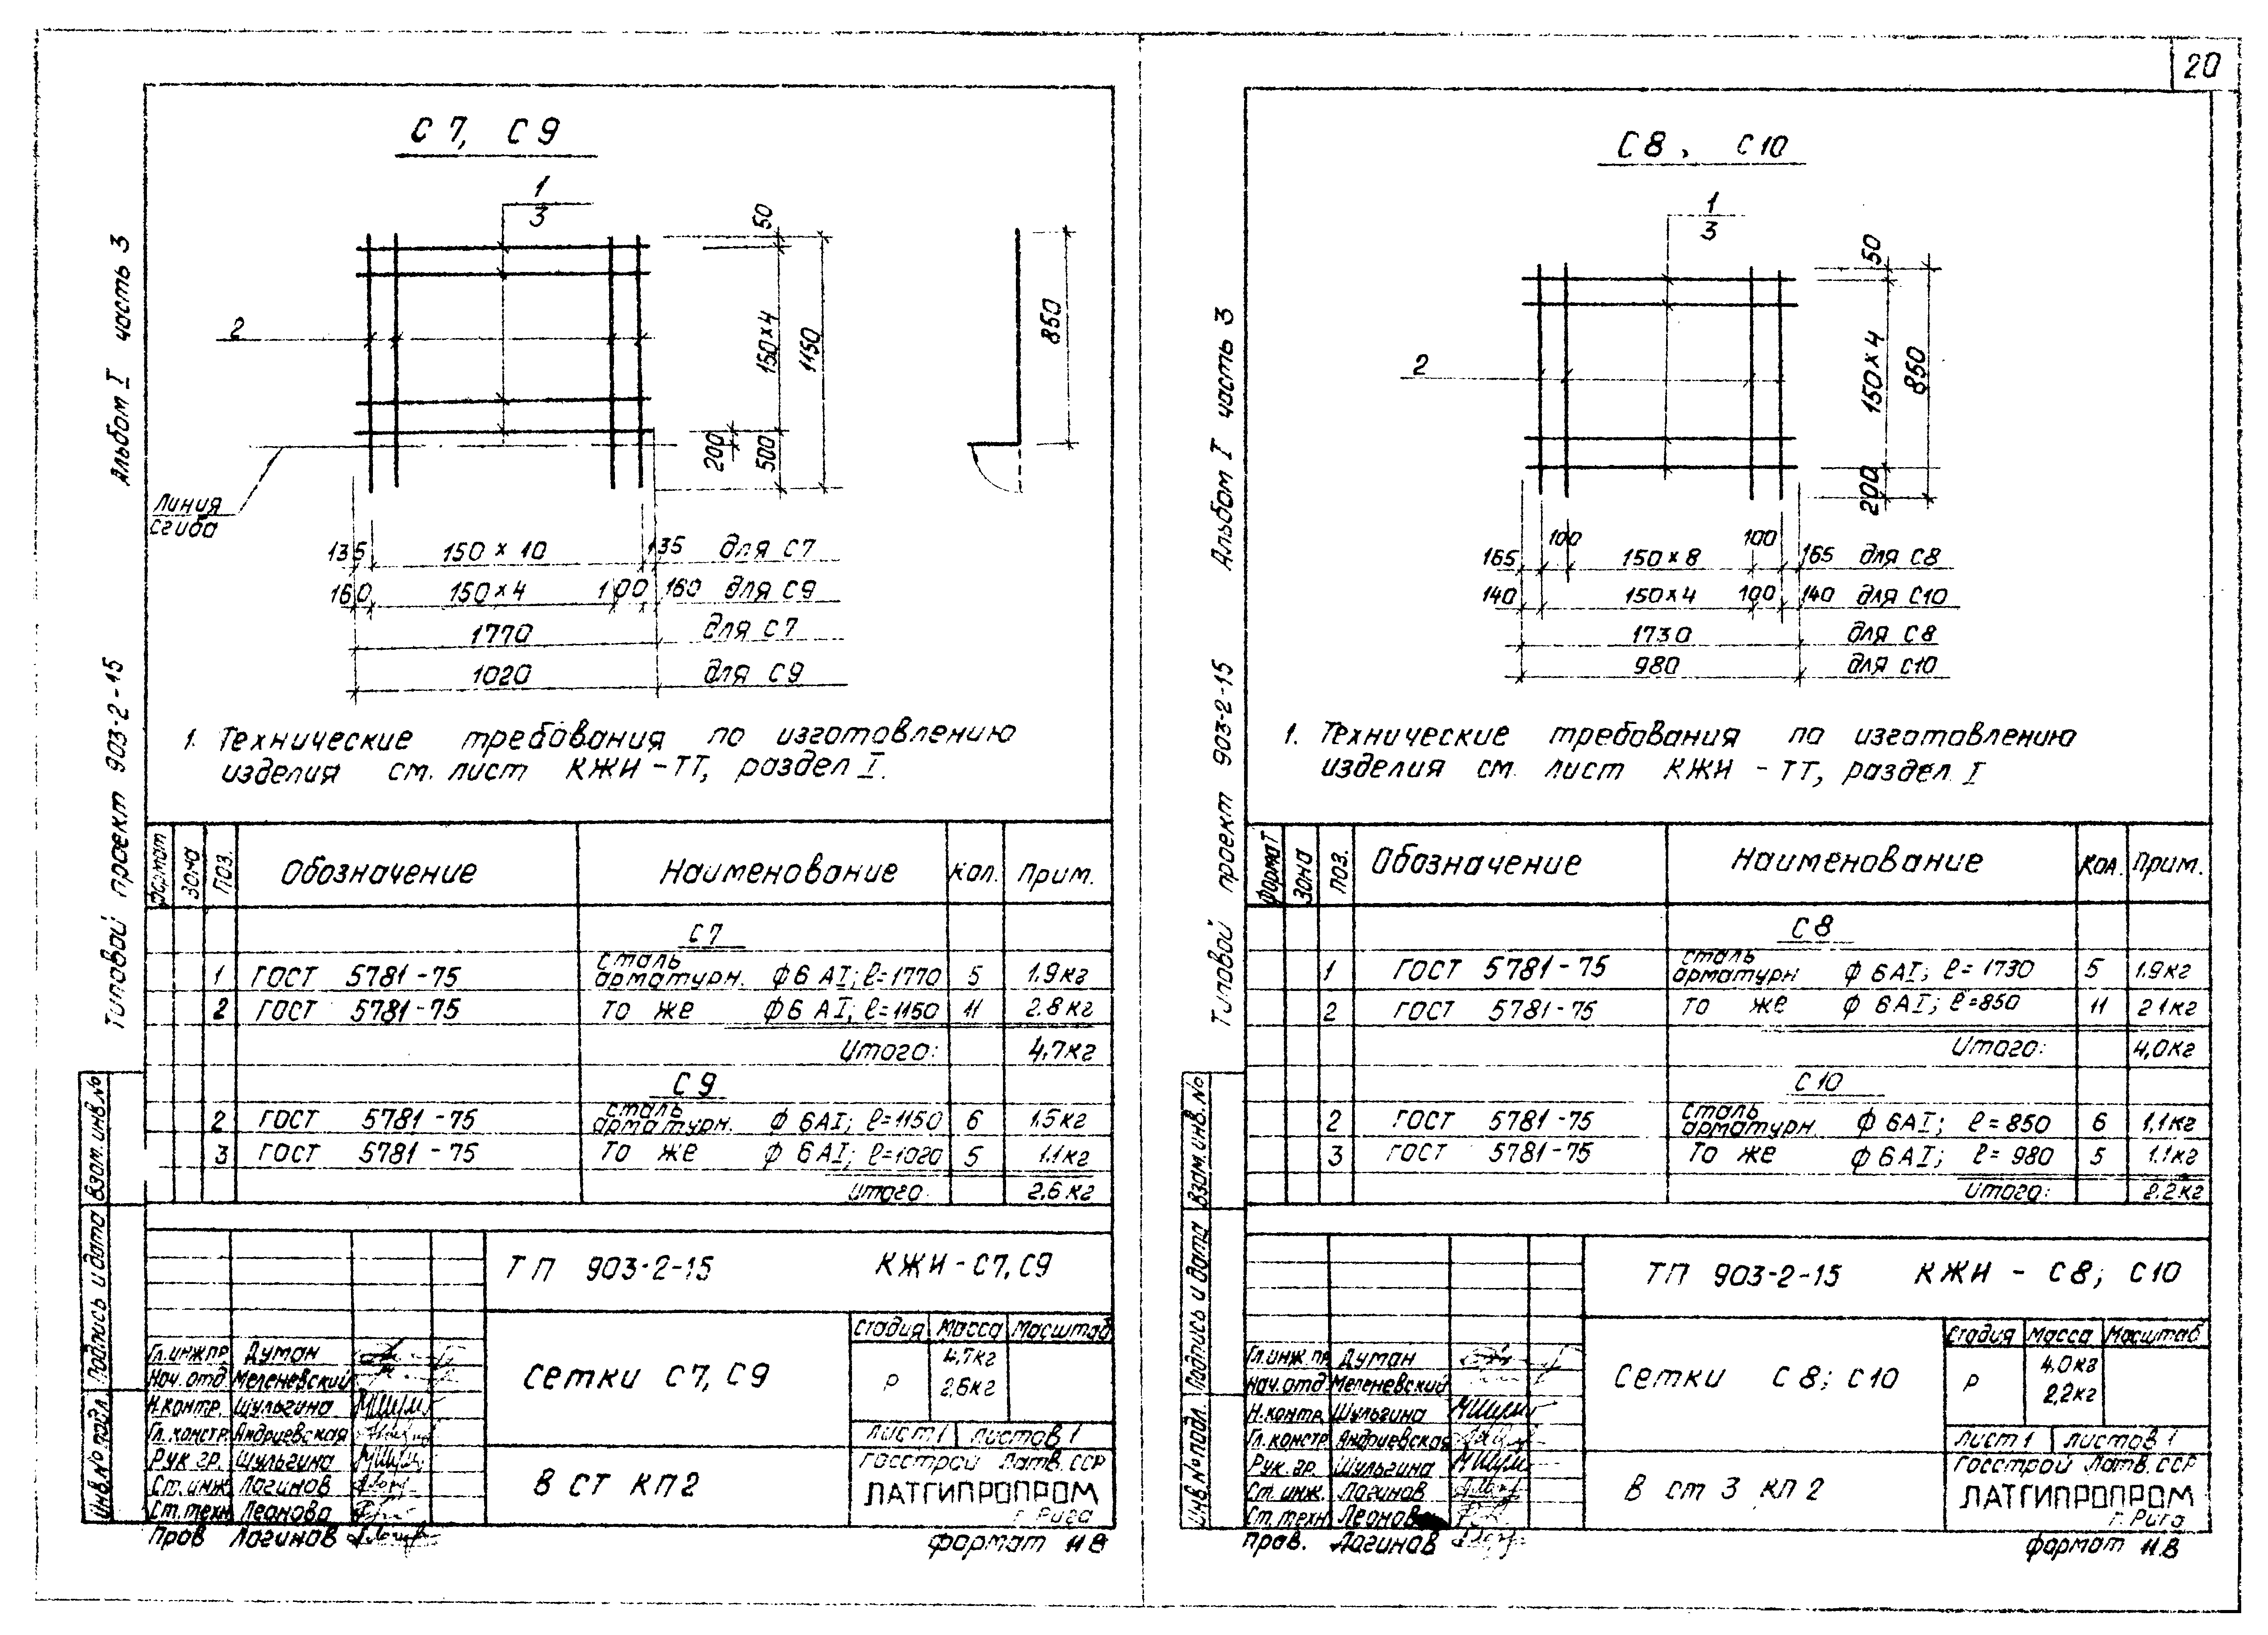 20
Альбом I часть 3
Типовой проект 903-2-15
С7, С9
1
3
2
50
150×4
1150
200
500
850
Линия
сгиба
135 150×10 135 для С7
160 150×4 100 160 для С9
1770 для С7
1020 для С9
1. Технические требования по изготовлению
изделия см. лист КЖИ-ТТ, раздел I.
Формат Зона Поз. Обозначение Наименование Кол. Прим.
С7
1 ГОСТ 5781-75 сталь арматурн. ф6 АI; ℓ=1770 5 1.9кг
2 ГОСТ 5781-75 То же ф6 АI; ℓ=1150 11 2.8кг
Итого: 4,7кг
С9
2 ГОСТ 5781-75 сталь арматурн. ф6АI; ℓ=1150 6 1.5кг
3 ГОСТ 5781-75 То же ф6АI; ℓ=1020 5 1.1кг
Итого: 2.6кг
Взам. инв.№
Подпись и дата
Инв.№ подл.
ТП 903-2-15 КЖИ-С7,С9
Гл.инж.пр. Думан
Нач.отд Меленевский
Н.контр. Шульгина
Гл.констр. Андриевская
Рук гр. Шульгина
Ст.инж Лагинов
Ст.техн Леонова
Пров Лагинов
сетки С7, С9
В СТ КП2
Стадия Масса Масштаб
Р 4,7кг
2,6кг
Лист 1 Листов 1
Госстрой Латв.ССР
ЛАТГИПРОПРОМ
г. Рига
формат 11В
Альбом I часть 3
Типовой проект 903-2-15
С8, С10
1
3
2
50
150×4
850
200
165 100 150×8 100 165 для С8
140 150×4 100 140 для С10
1730 для С8
980 для С10
1. Технические требования по изготовлению
изделия см. лист КЖИ-ТТ, раздел I
Формат Зона Поз. Обозначение Наименование Кол. Прим.
С8
1 ГОСТ 5781-75 сталь арматурн ф6АI; ℓ=1730 5 1.9кг
2 ГОСТ 5781-75 то же ф6АI; ℓ=850 11 2.1кг
Итого: 4,0кг
С10
2 ГОСТ 5781-75 сталь арматурн. ф6АI; ℓ=850 6 1,1кг
3 ГОСТ 5781-75 То же ф6АI; ℓ=980 5 1.1кг
Итого: 2.2кг
Взам.инв.№
Подпись и дата
Инв.№ подл.
ТП 903-2-15 КЖИ - С8; С10
Гл.инж.пр Думан
Нач.отд Меленевский
Н.контр Шульгина
Гл.констр Андриевская
Рук.гр. Шульгина
Ст.инж. Лагинов
Ст.техн Леонова
Пров. Лагинов
Сетки С8; С10
В ст 3 кп 2
Стадия Масса Масштаб
Р 4.0кг
2,2кг
Лист 1 Листов 1
Госстрой Латв.ССР
ЛАТГИПРОПРОМ
г. Рига
формат 11.В